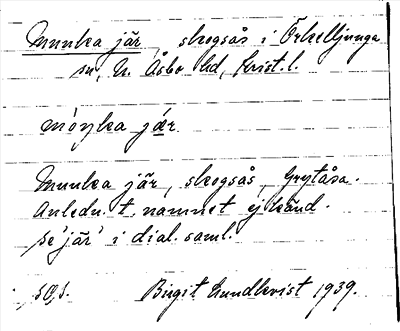 Munka jär, skogsås i Örkelljunga
sn, N. Åsbo hd, Krist. l.
jär
Munka jär, skogsås, Grytåsa.
Anledn. t. namnet ej känd.
se 'jär' i dial. saml.
Birgit Lundkvist 1939.